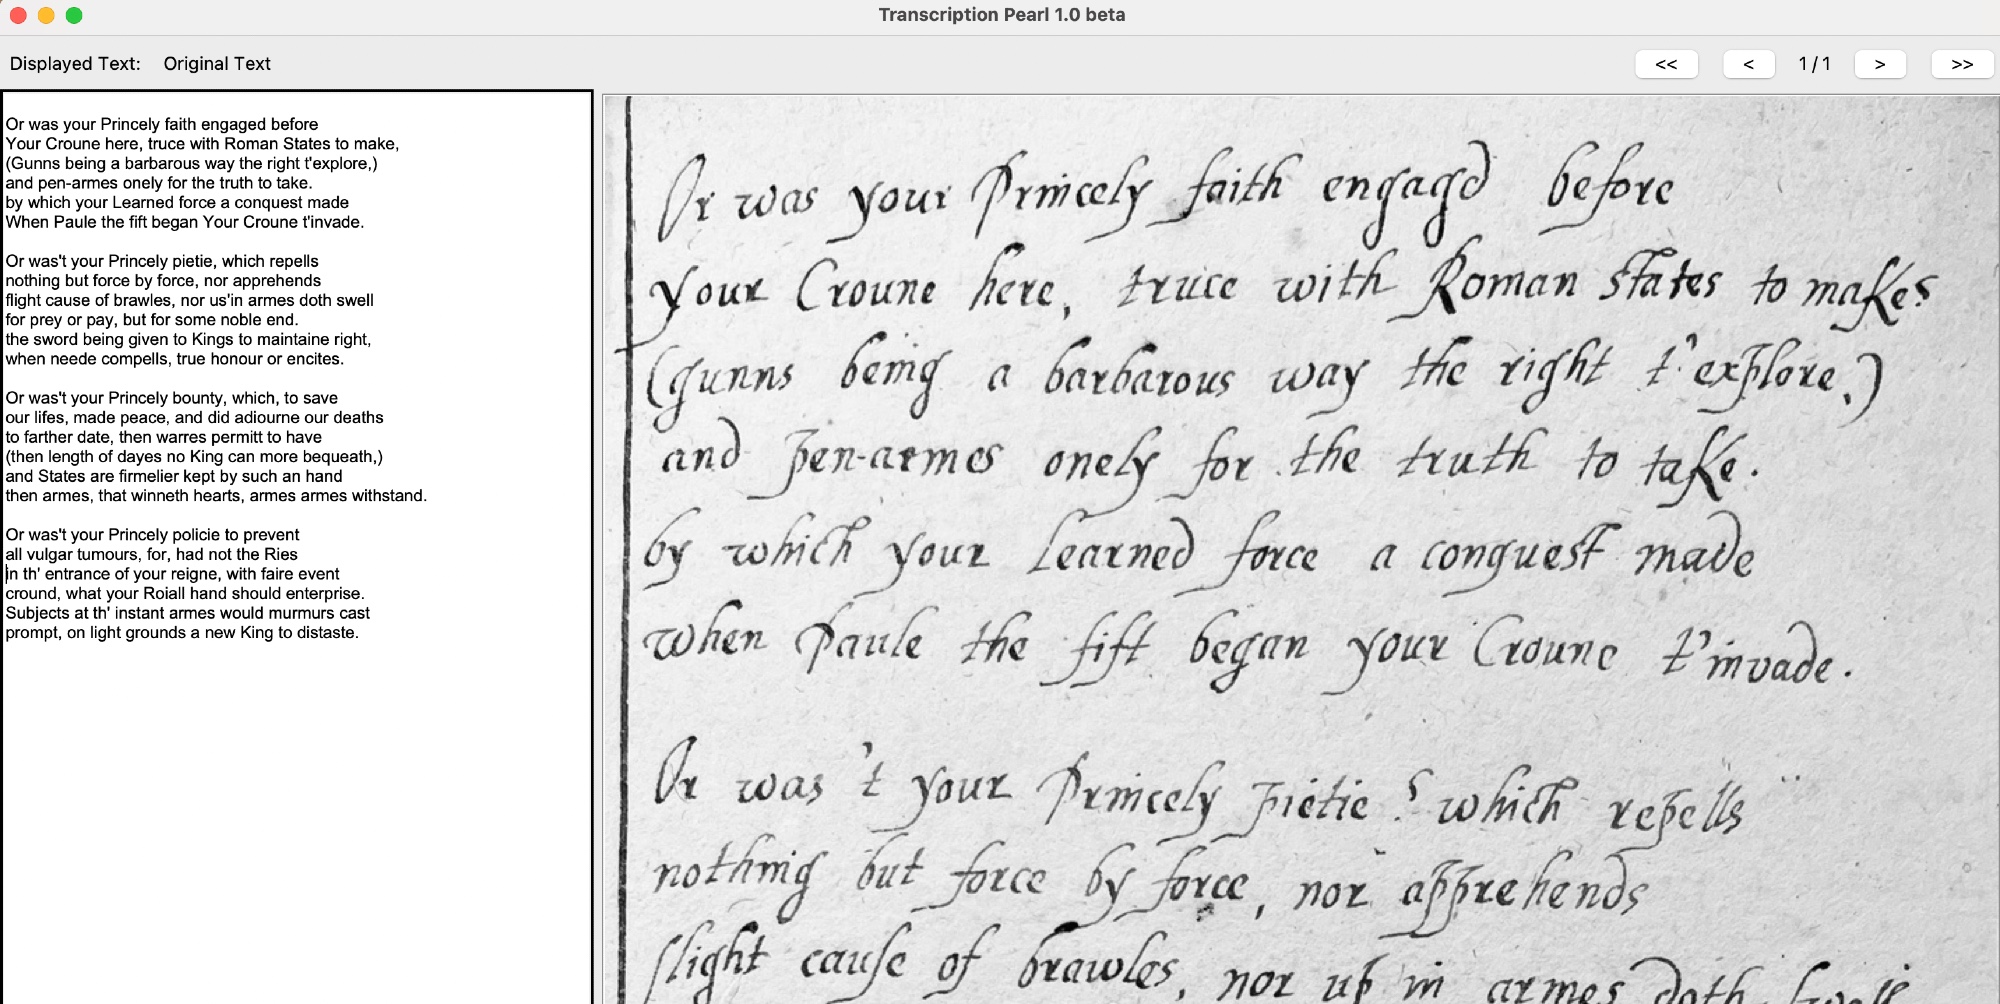 Transcription Pearl 1.0 beta
Displayed Text: Original Text
<< < 1 / 1 > >>
Or was your Princely faith engaged before
Your Croune here, truce with Roman States to make,
(Gunns being a barbarous way the right t'explore,)
and pen-armes onely for the truth to take.
by which your Learned force a conquest made
When Paule the fift began Your Croune t'invade.
Or was't your Princely pietie, which repells
nothing but force by force, nor apprehends
flight cause of brawles, nor us'in armes doth swell
for prey or pay, but for some noble end.
the sword being given to Kings to maintaine right,
when neede compells, true honour or encites.
Or was't your Princely bounty, which, to save
our lifes, made peace, and did adiourne our deaths
to farther date, then warres permitt to have
(then length of dayes no King can more bequeath,)
and States are firmelier kept by such an hand
then armes, that winneth hearts, armes armes withstand.
Or was't your Princely policie to prevent
all vulgar tumours, for, had not the Ries
in th' entrance of your reigne, with faire event
cround, what your Roiall hand should enterprise.
Subjects at th' instant armes would murmurs cast
prompt, on light grounds a new King to distaste.
Or was your Princely faith engagd before
your Croune here, truce with Roman states to make?
(gunns being a barbarous way the right t'explore,)
and pen-armes onely for the truth to take.
by which your learned force a conquest made
when Paule the fift began your Croune t'invade.
Or was 't your Princely pietie? which repells
nothing but force by force, nor apprehends
slight cause of brawles, nor up in armes doth